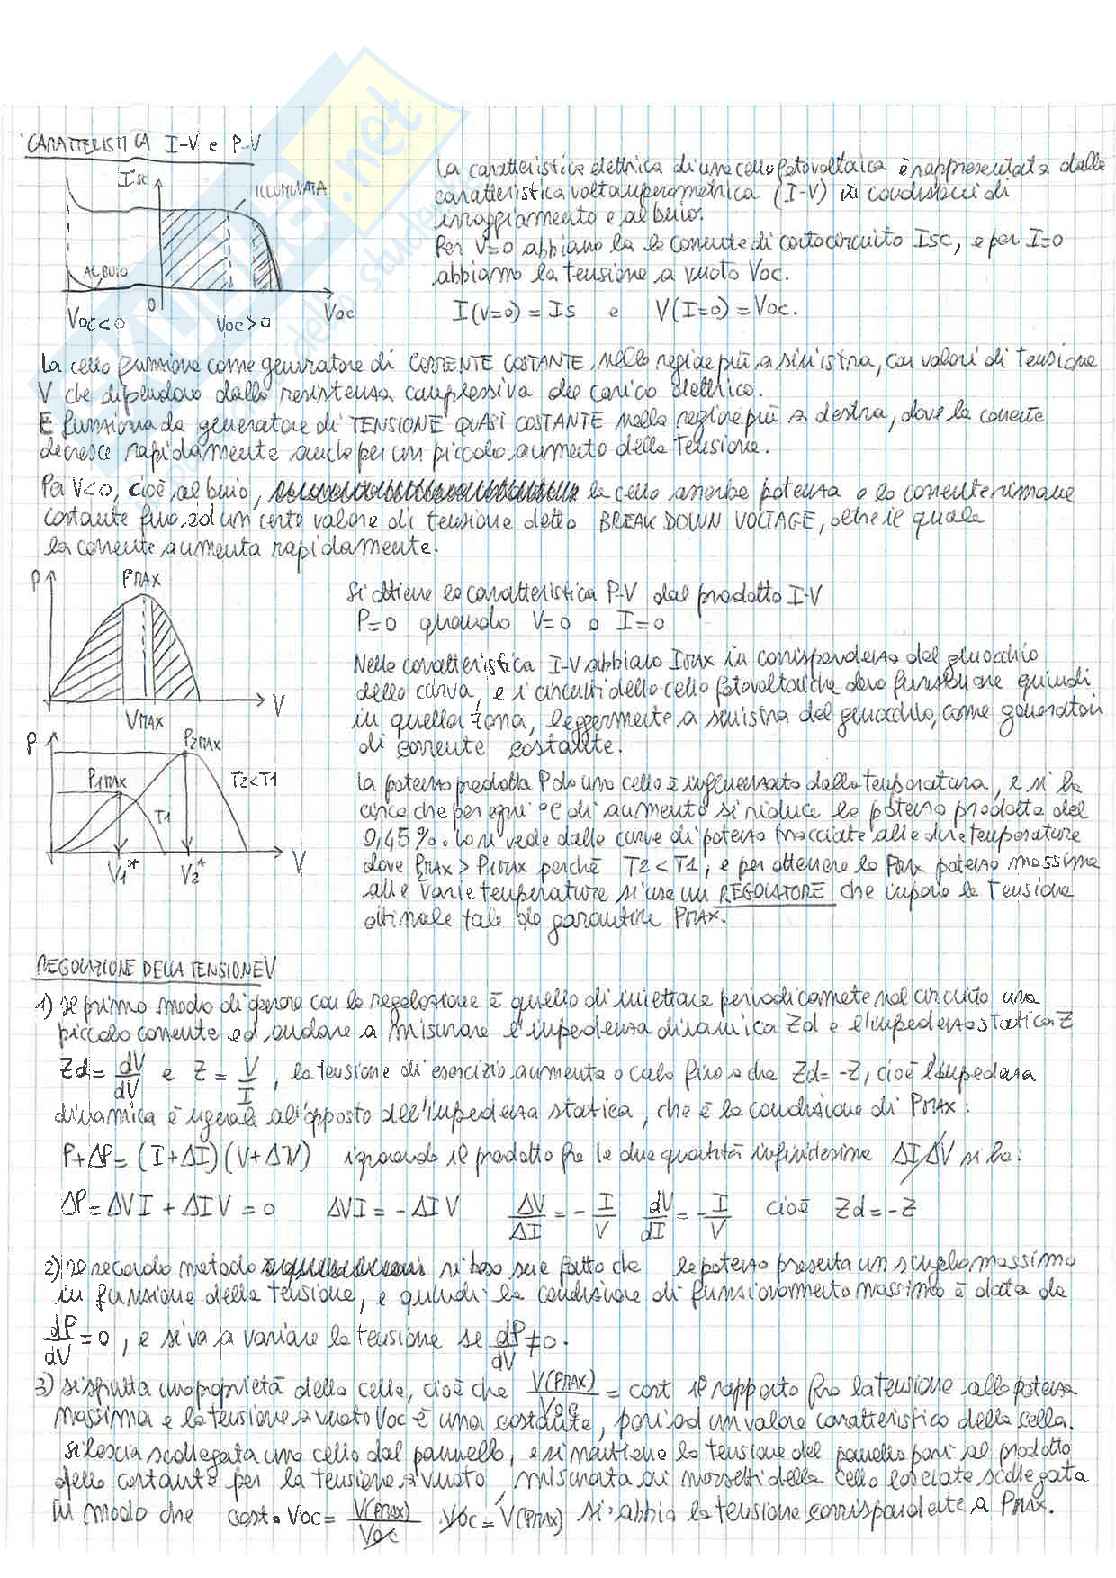 CARATTERISTICA I-V e P-V
Isc
ILLUMINATA
AL BUIO
0
Voc<0
Voc>0
Voc
La caratteristica elettrica di una cella fotovoltaica è rappresentata dalla
caratteristica voltamperometrica (I-V) in condizioni di
irraggiamento e al buio.
Per V=0 abbiamo la la corrente di cortocircuito Isc, e per I=0
abbiamo la tensione a vuoto Voc.
I(V=0) = Is e V(I=0) = Voc.
La cella funziona come generatore di CORRENTE COSTANTE nella regione più a sinistra, con valori di tensione
V che dipendono dalla resistenza complessiva del carico elettrico.
E funziona da generatore di TENSIONE QUASI COSTANTE nella regione più a destra, dove la corrente
decresce rapidamente anche per un piccolo aumento della tensione.
Per V<0, cioè al buio, la cella assorbe potenza e la corrente rimane
costante fino ad un certo valore di tensione detto BREAK DOWN VOLTAGE, oltre il quale
la corrente aumenta rapidamente.
P
PMAX
V
VMAX
Si ottiene la caratteristica P-V dal prodotto I·V
P=0 quando V=0 o I=0
Nella caratteristica I-V abbiamo IMAX in corrispondenza del ginocchio
della curva, e i circuiti delle celle fotovoltaiche deve funzionare quindi
in quella zona, leggermente a sinistra del ginocchio, come generatori
di corrente costante.
P
P2MAX
P1MAX
T2<T1
T1
V
V1*
V2*
La potenza prodotta P da una cella è influenzata dalla temperatura, e si ha
circa che per ogni °C di aumento si riduce la potenza prodotta del
0,45%. Lo si vede dalle curve di potenza tracciate alle due temperature
dove P2MAX > P1MAX perché T2<T1, e per ottenere la PMAX potenza massima
alle varie temperature si usa un REGOLATORE che impone la tensione
ottimale tale da garantire PMAX.
REGOLAZIONE DELLA TENSIONE V
1) Il primo modo di operare con la regolazione è quello di iniettare periodicamente nel circuito una
piccola corrente ed andare a misurare l'impedenza dinamica Zd e l'impedenza statica Z
Zd = dV/dV e Z = V/I, la tensione di esercizio aumenta o cala fino a che Zd = -Z, cioè l'impedenza
dinamica è uguale all'opposto dell'impedenza statica, che è la condizione di PMAX:
P+ΔP = (I+ΔI)(V+ΔV) ignorando il prodotto fra le due quantità infinitesime ΔI,ΔV si ha:
ΔP = ΔV I + ΔI V = 0 ΔVI = -ΔI V ΔV/ΔI = - I/V dV/dI = - I/V cioè Zd = -Z
2) Il secondo metodo si basa sul fatto che la potenza presenta un singolo massimo
in funzione della tensione, e quindi la condizione di funzionamento massimo è data da
dP/dV = 0, e si va a variare la tensione se dP/dV ≠ 0.
3) Si sfrutta una proprietà delle celle, cioè che V(PMAX)/Voc = cost il rapporto fra la tensione alla potenza
massima e la tensione a vuoto Voc è una costante, pari ad un valore caratteristico della cella.
Si lascia scollegata una cella dal pannello, e si mantiene la tensione del pannello pari al prodotto
della costante per la tensione a vuoto, misurata ai morsetti della cella lasciata scollegata
in modo che cost·Voc = V(PMAX)/Voc · Voc = V(PMAX) si abbia la tensione corrispondente a PMAX.